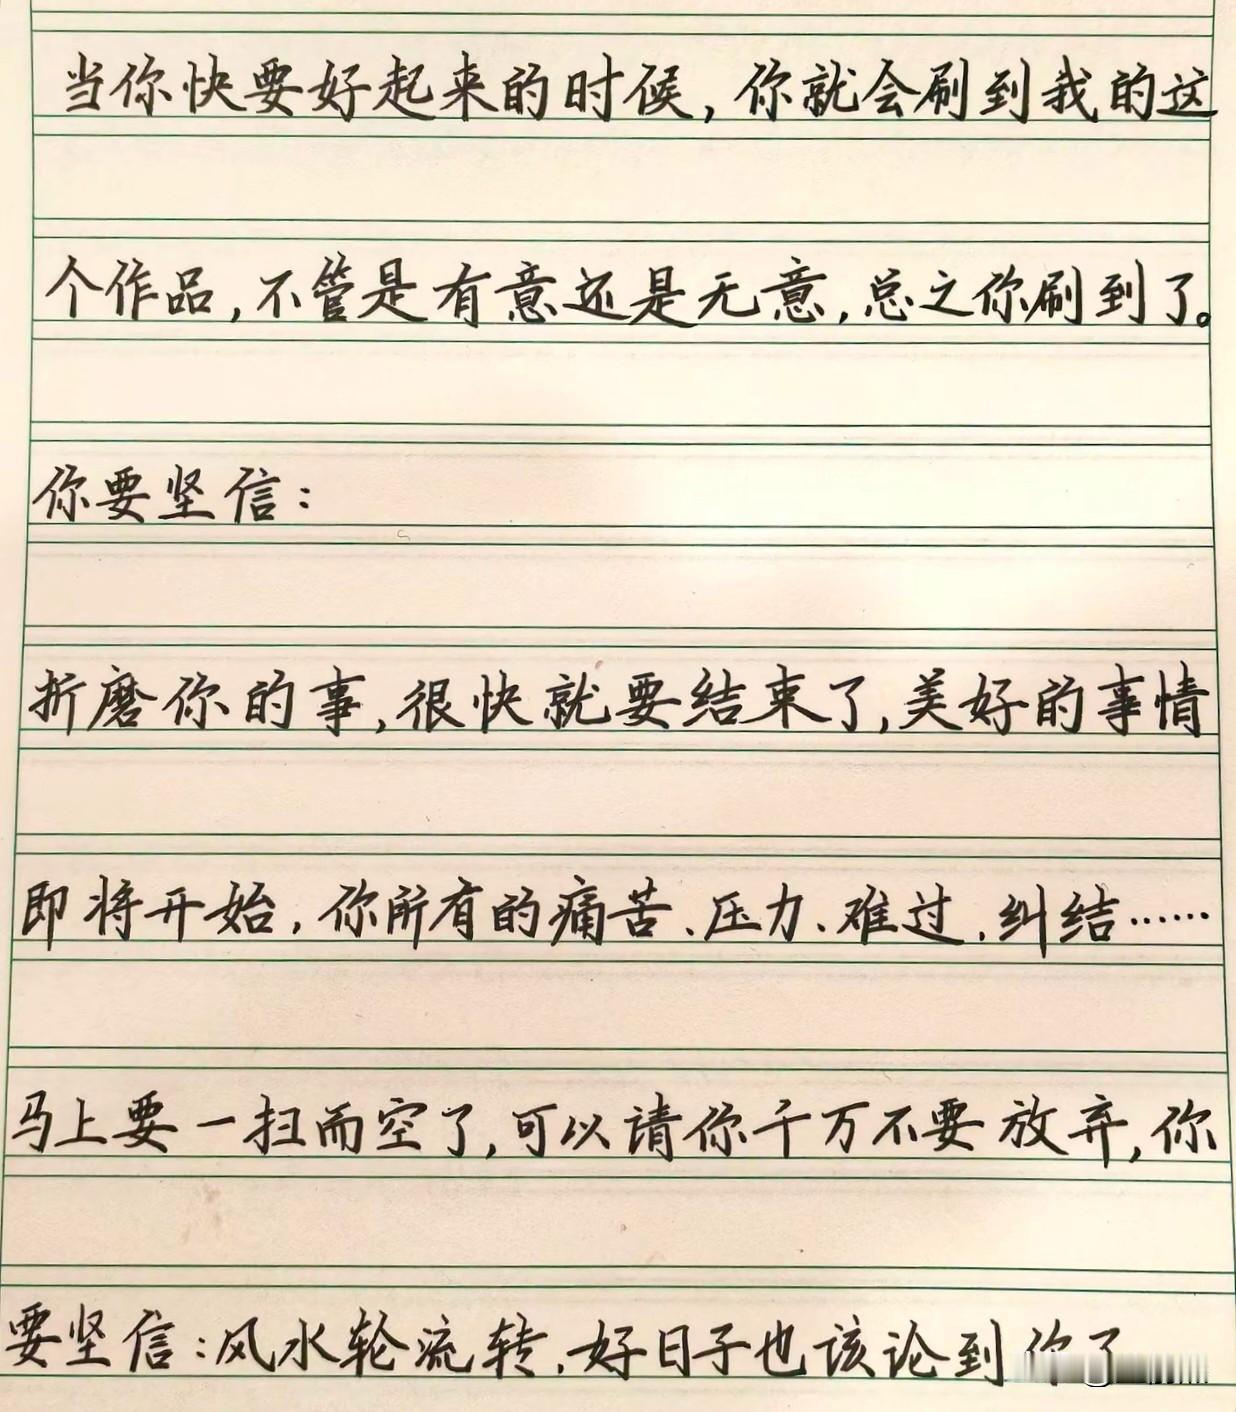 当你快要好起来的时候，你就会刷到我的这
个作品，不管是有意还是无意，总之你刷到了。
你要坚信：
折磨你的事，很快就要结束了，美好的事情
即将开始，你所有的痛苦、压力、难过、纠结……
马上要一扫而空了，可以请你千万不要放弃，你
要坚信：风水轮流转，好日子也该论到你了